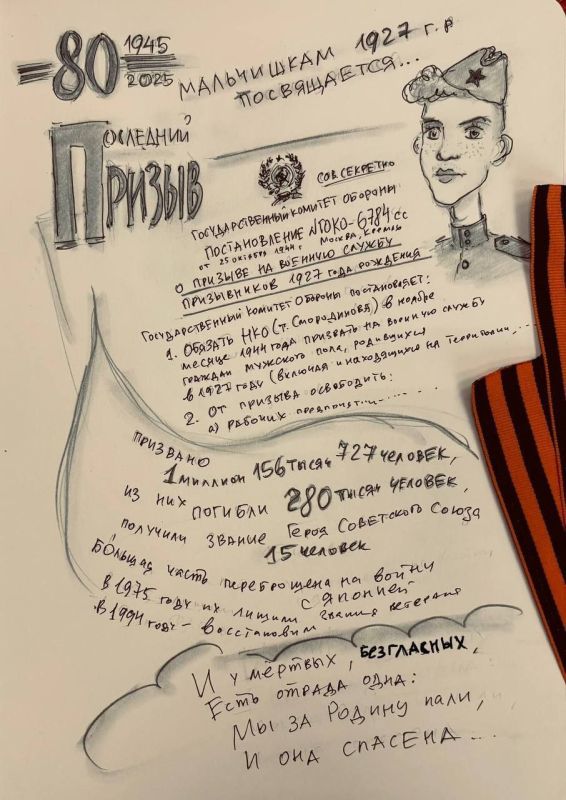 80 1945
2025
МАЛЬЧИШКАМ 1927 г.р
ПОСВЯЩАЕТСЯ...
ПОСЛЕДНИЙ
ПРИЗЫВ
СОВ.СЕКРЕТНО
ГОСУДАРСТВЕННЫЙ КОМИТЕТ ОБОРОНЫ
ПОСТАНОВЛЕНИЕ №ГОКО-6784 сс
от 25 октября 1944 г Москва, Кремль
О ПРИЗЫВЕ НА ВОЕННУЮ СЛУЖБУ
ПРИЗЫВНИКОВ 1927 ГОДА РОЖДЕНИЯ
Государственный Комитет Обороны постановляет:
1. Обязать НКО (т. Смородинова) в ноябре
месяце 1944 года призвать на военную службу
граждан мужского пола, родившихся
в 1927 году (включая и находящихся на территории,...
2. От призыва освободить:
а) рабочих
ПРИЗВАНО
1 миллион 156 тысяч 727 человек,
из них погибли 280 тысяч человек,
получили звание Героя Советского Союза
15 человек
Большая часть переброшена на войну
с Японией
В 1975 году их лишили звания ветерана
В 1994 году - восстановим
И у мёртвых, безгласных,
Есть отрада одна:
Мы за Родину пали,
И она спасена...